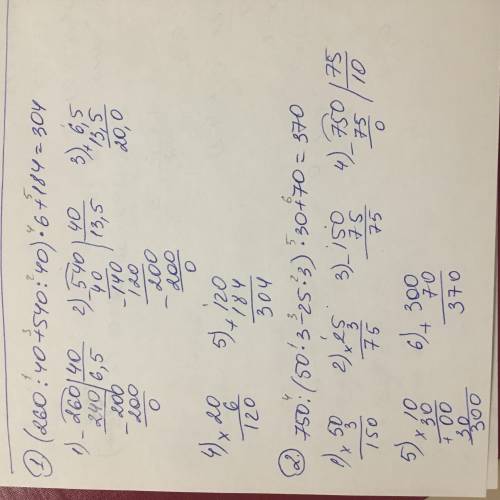 ① (260:40+540:40)·6+184=304
1 3 2 4 5
1) -260|40 2) -540|40 3) +6,5
240|6,5 40|13,5 13,5
-200 -140 20,0
200 120
0 -200
200
0
4) ×20 5) +120
6 184
120 304
② 750:(50·3-25·3)·30+70=370
4 1 3 2 5 6
1) ×50 2) ×25 3) -150 4) -750|75
3 3 75 75|10
150 75 75 0
5) ×10 6) +300
30 70
+00 370
30
300